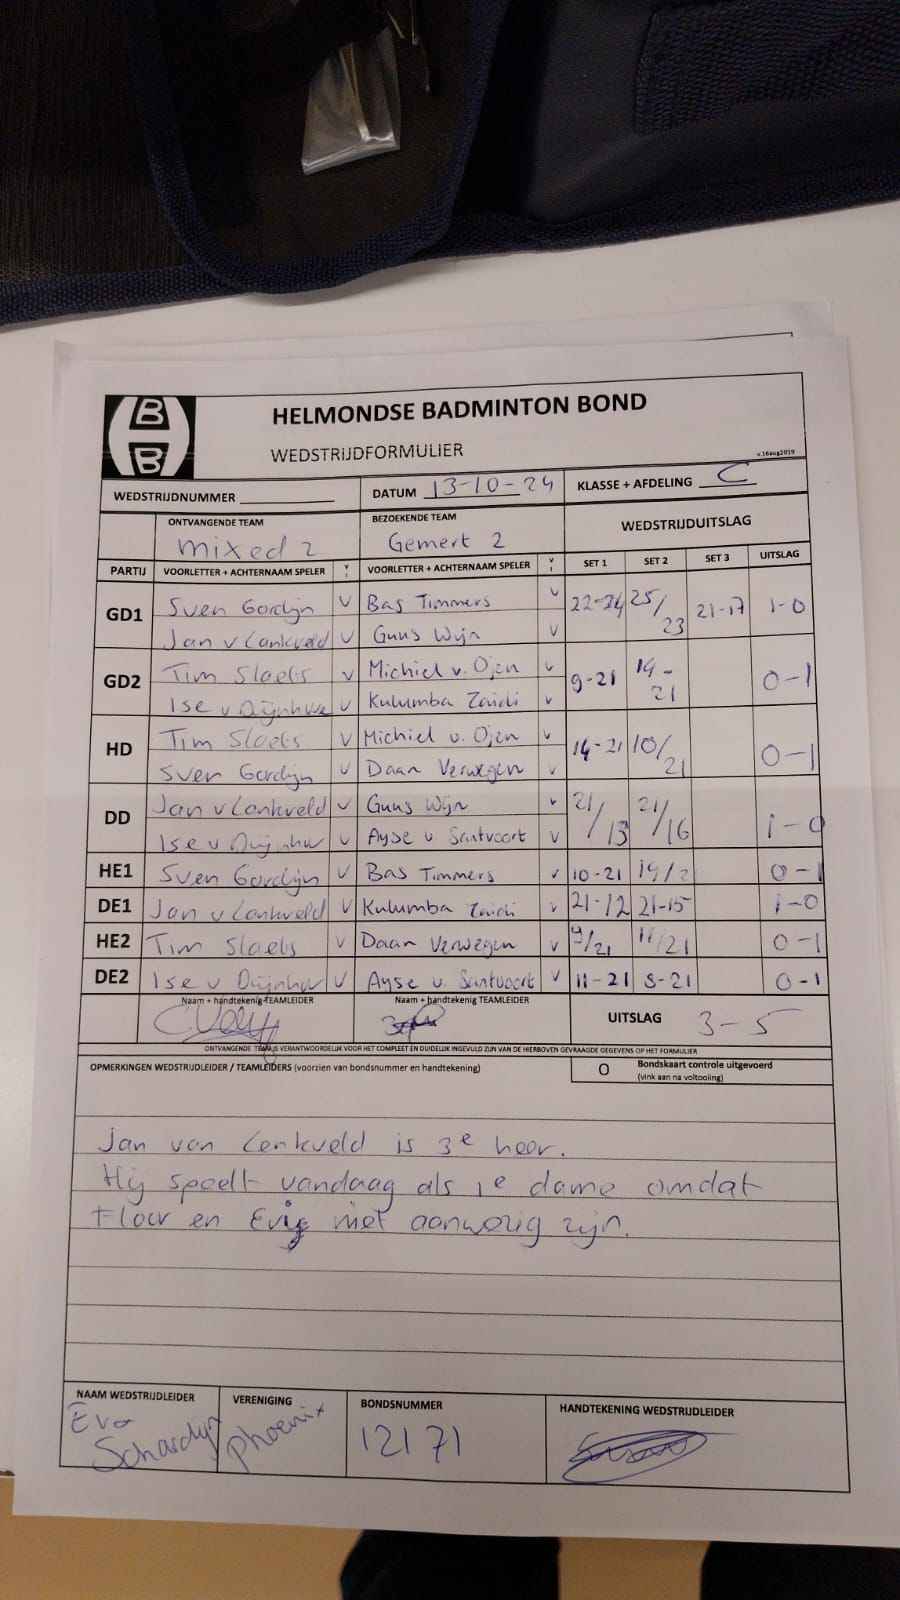 HELMONDSE BADMINTON BOND
WEDSTRIJDFORMULIER
v.16aug2019
WEDSTRIJDNUMMER DATUM 13-10-24 KLASSE + AFDELING C
ONTVANGENDE TEAM BEZOEKENDE TEAM WEDSTRIJDUITSLAG
mixed 2 Gemert 2
PARTIJ VOORLETTER + ACHTERNAAM SPELER V VOORLETTER + ACHTERNAAM SPELER V SET 1 SET 2 SET 3 UITSLAG
GD1 Sven Gordijn V Bas Timmers V 22-24 25/23 21-17 1-0
Jan v Lankveld V Guus Wijn V
GD2 Tim Slaets V Michiel v. Ojen V 9-21 14-21 0-1
Ise v Duijnhw V Kulumba Zaidi V
HD Tim Slaets V Michiel v. Ojen V 14-21 10/21 0-1
Sven Gordijn V Daan Verwegen V
DD Jan v Lankveld V Guus Wijn V 21/13 21/16 1-0
Ise v Duijnhw V Ayse v Santvoort V
HE1 Sven Gordijn V Bas Timmers V 10-21 0-1
DE1 Jan v Lankveld V Kulumba Zaidi V 21-12 21-15 1-0
HE2 Tim Slaets V Daan Verwegen V 9/21 11/21 0-1
DE2 Ise v Duijnhw V Ayse v. Santvoort V 11-21 8-21 0-1
Naam + handtekenig TEAMLEIDER Naam + handtekenig TEAMLEIDER
UITSLAG 3-5
ONTVANGENDE TEAM IS VERANTWOORDELIJK VOOR HET COMPLEET EN DUIDELIJK INGEVULD ZIJN VAN DE HIERBOVEN GEVRAAGDE GEGEVENS OP HET FORMULIER
OPMERKINGEN WEDSTRIJDLEIDER / TEAMLEIDERS (voorzien van bondsnummer en handtekening) O Bondskaart controle uitgevoerd
(vink aan na voltooiing)
Jan van Lenkveld is 3e heer.
Hij speelt vandaag als 1e dame omdat
Flour en Evie niet aanwezig zijn.
NAAM WEDSTRIJDLEIDER VERENIGING BONDSNUMMER HANDTEKENING WEDSTRIJDLEIDER
Eva Phoenix 12171
Schardijn